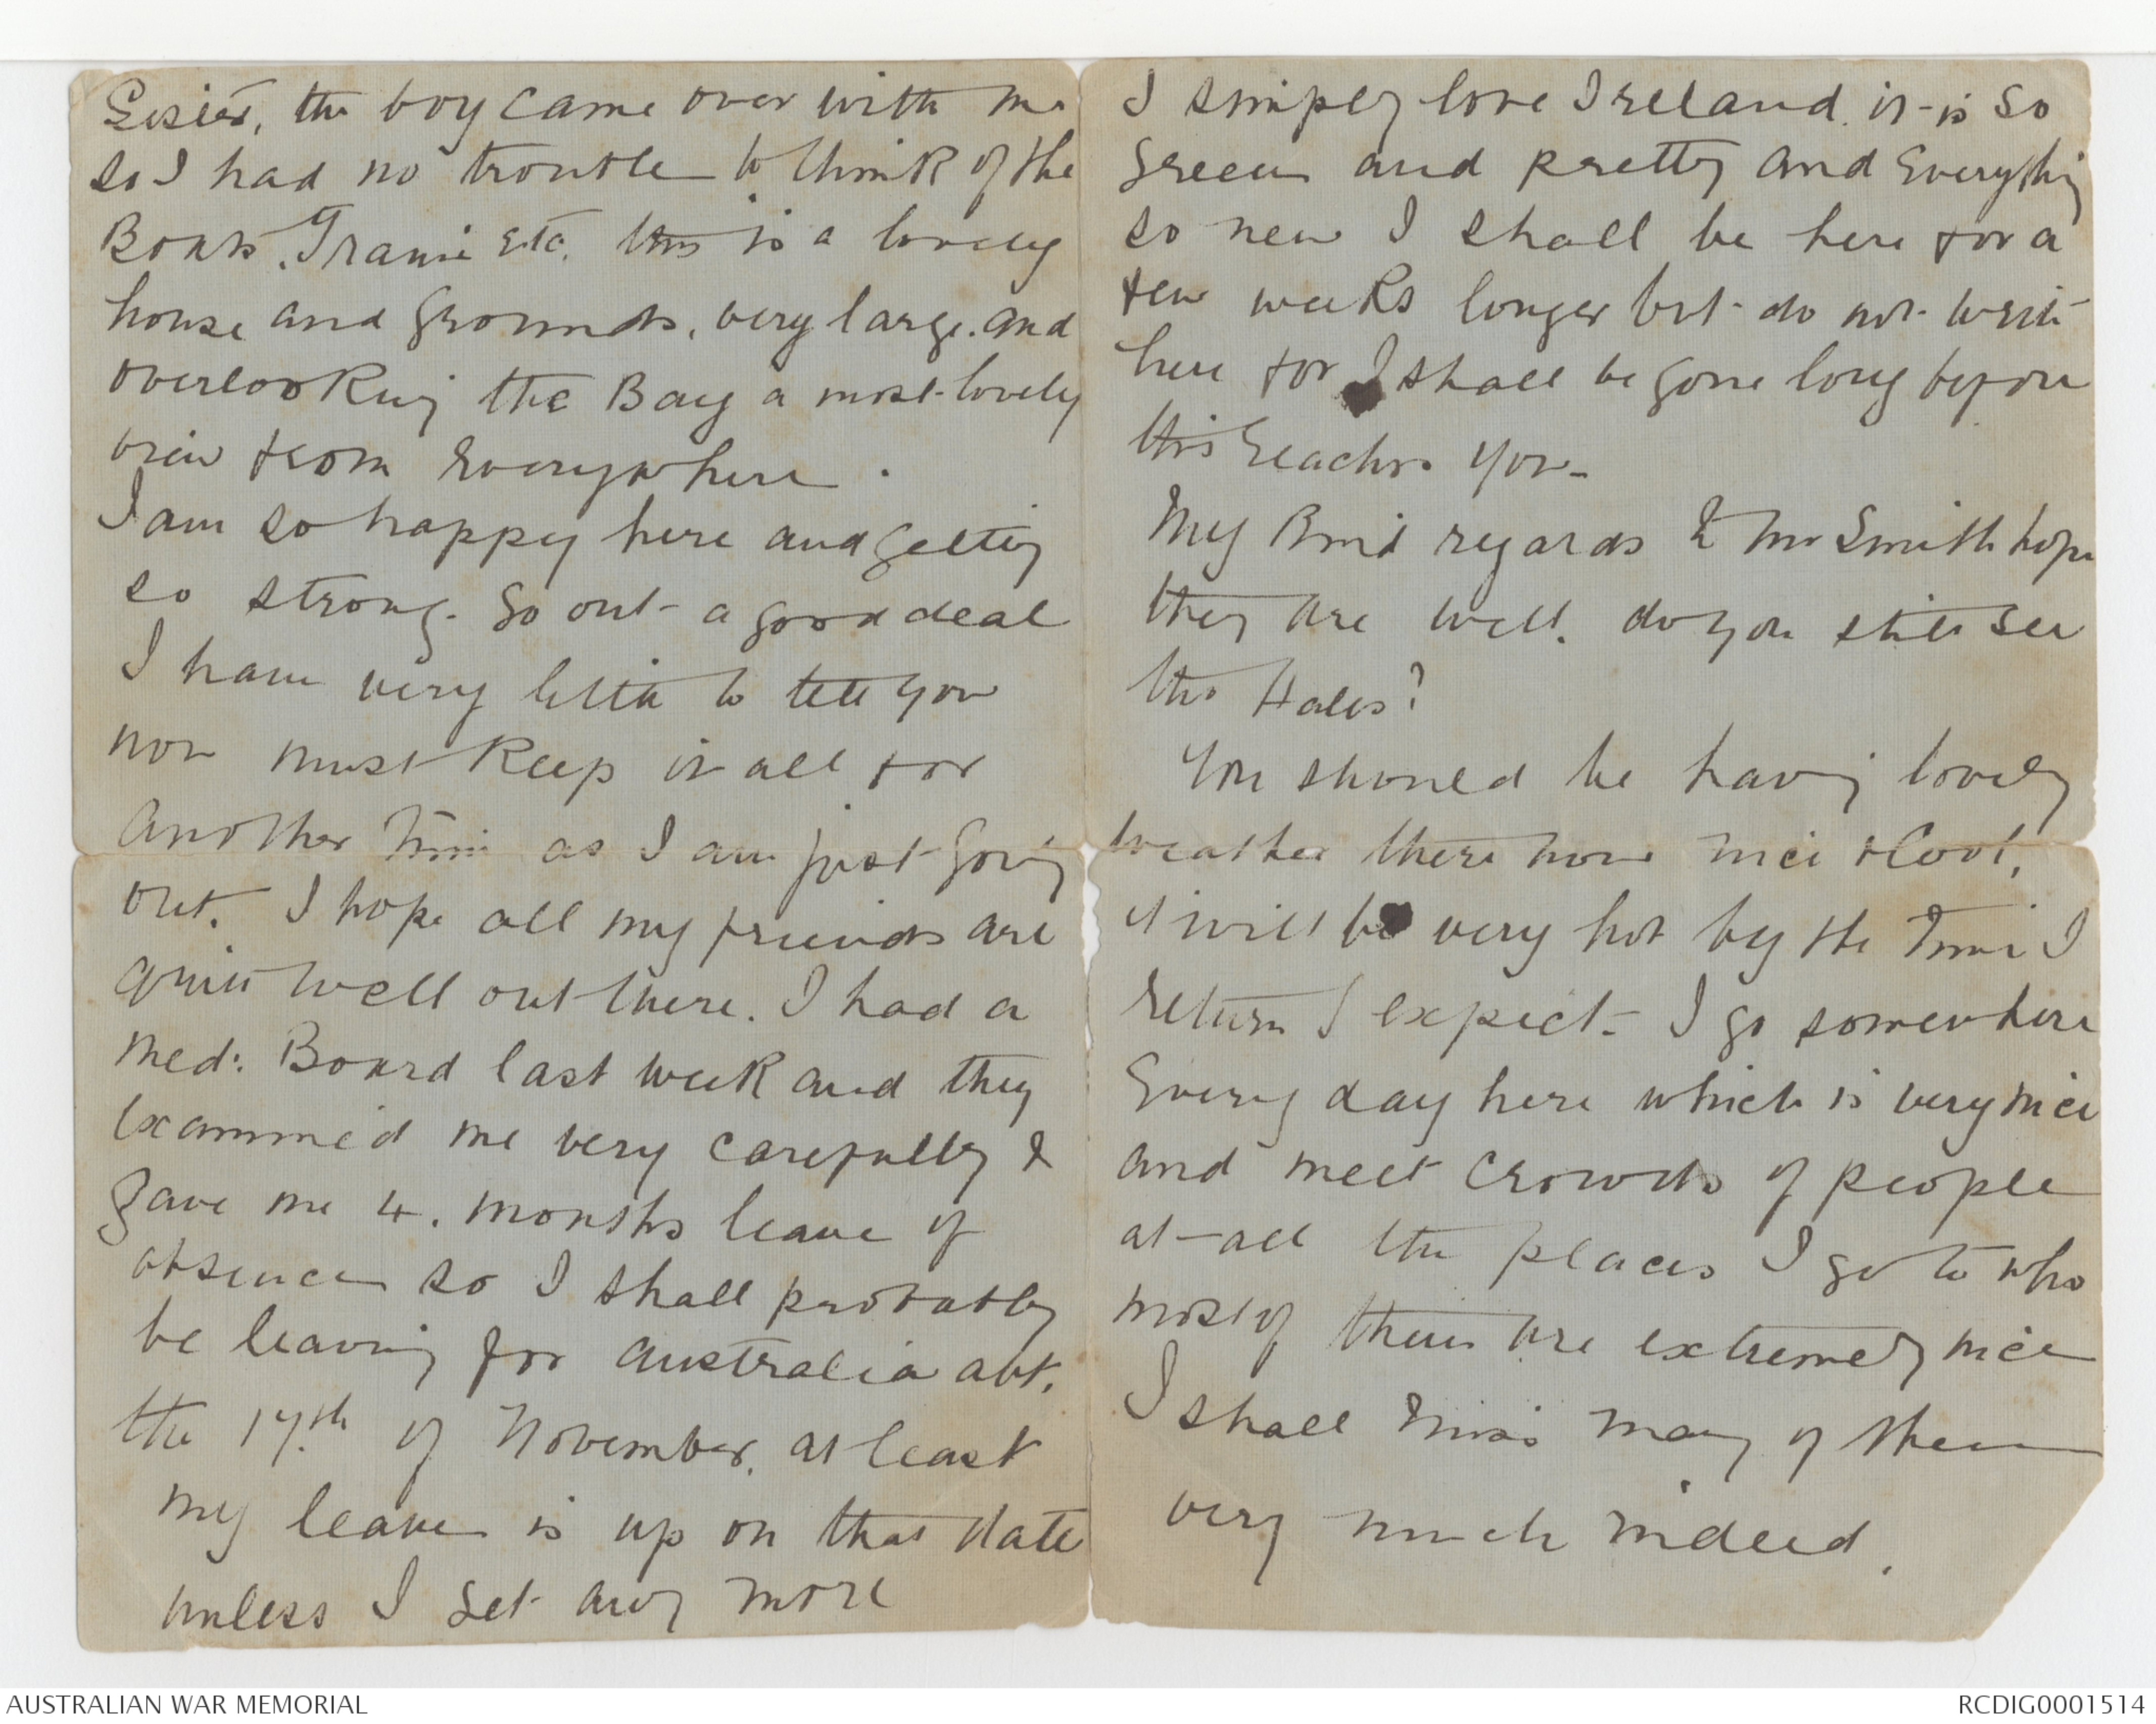 Sister, the boy came over with me
so I had no trouble to think of the
Boats, Trains etc. this is a lovely
house and grounds, very large. and
overlooking the Bay a most lovely
view from everywhere.
I am so happy here and getting
so strong. Go out a good deal
I have very little to tell you
now must keep it all for
another time as I am just going
out. I hope all my friends are
quite well out there. I had a
Med: Board last week and they
examined me very carefully &
gave me 4. months leave of
absence so I shall probably
be leaving for Australia abt.
the 17.th of November. at least
my leave is up on that date
unless I get any more
I simply love Ireland. it is so
green and pretty and everything
so new I shall be here for a
few weeks longer but do not write
here for I shall be gone long before
this reaches you—
My kind regards to Mr Smith hope
they are well. do you still see
the Hales?
You should be having lovely
weather there now nice & cool,
it will be very hot by the time I
return I expect— I go somewhere
every day here which is very nice
and meet crowds of people
at all the places I go to who
most of them are extremely nice
I shall miss many of them
very much indeed.
AUSTRALIAN WAR MEMORIAL
RCDIG0001514